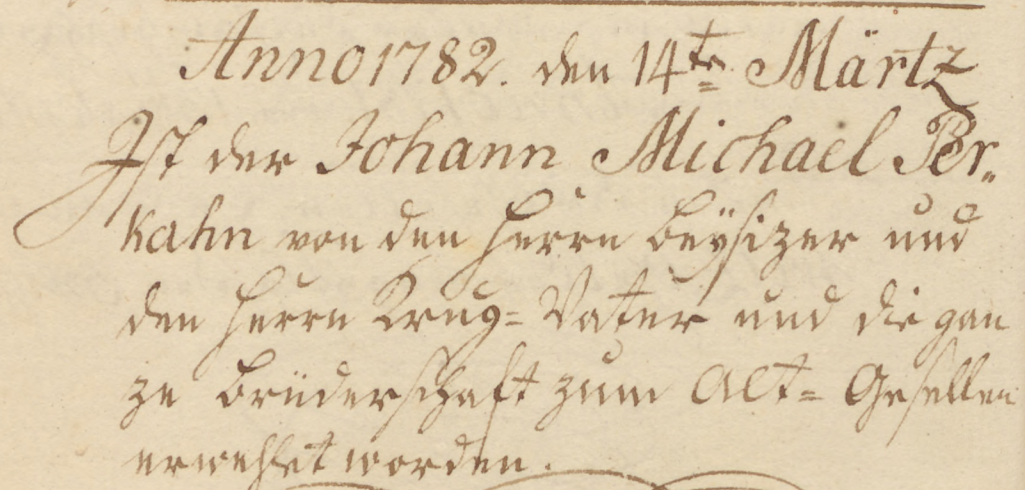 Anno 1782. den 14te Märtz
Ist der Johann Michael Per-
kahn von den Herrn Beÿsizer und
den Herrn Krug-Vater und die gan
ze Brüderschaft zum Alt-Gesellen
erwehlet worden.